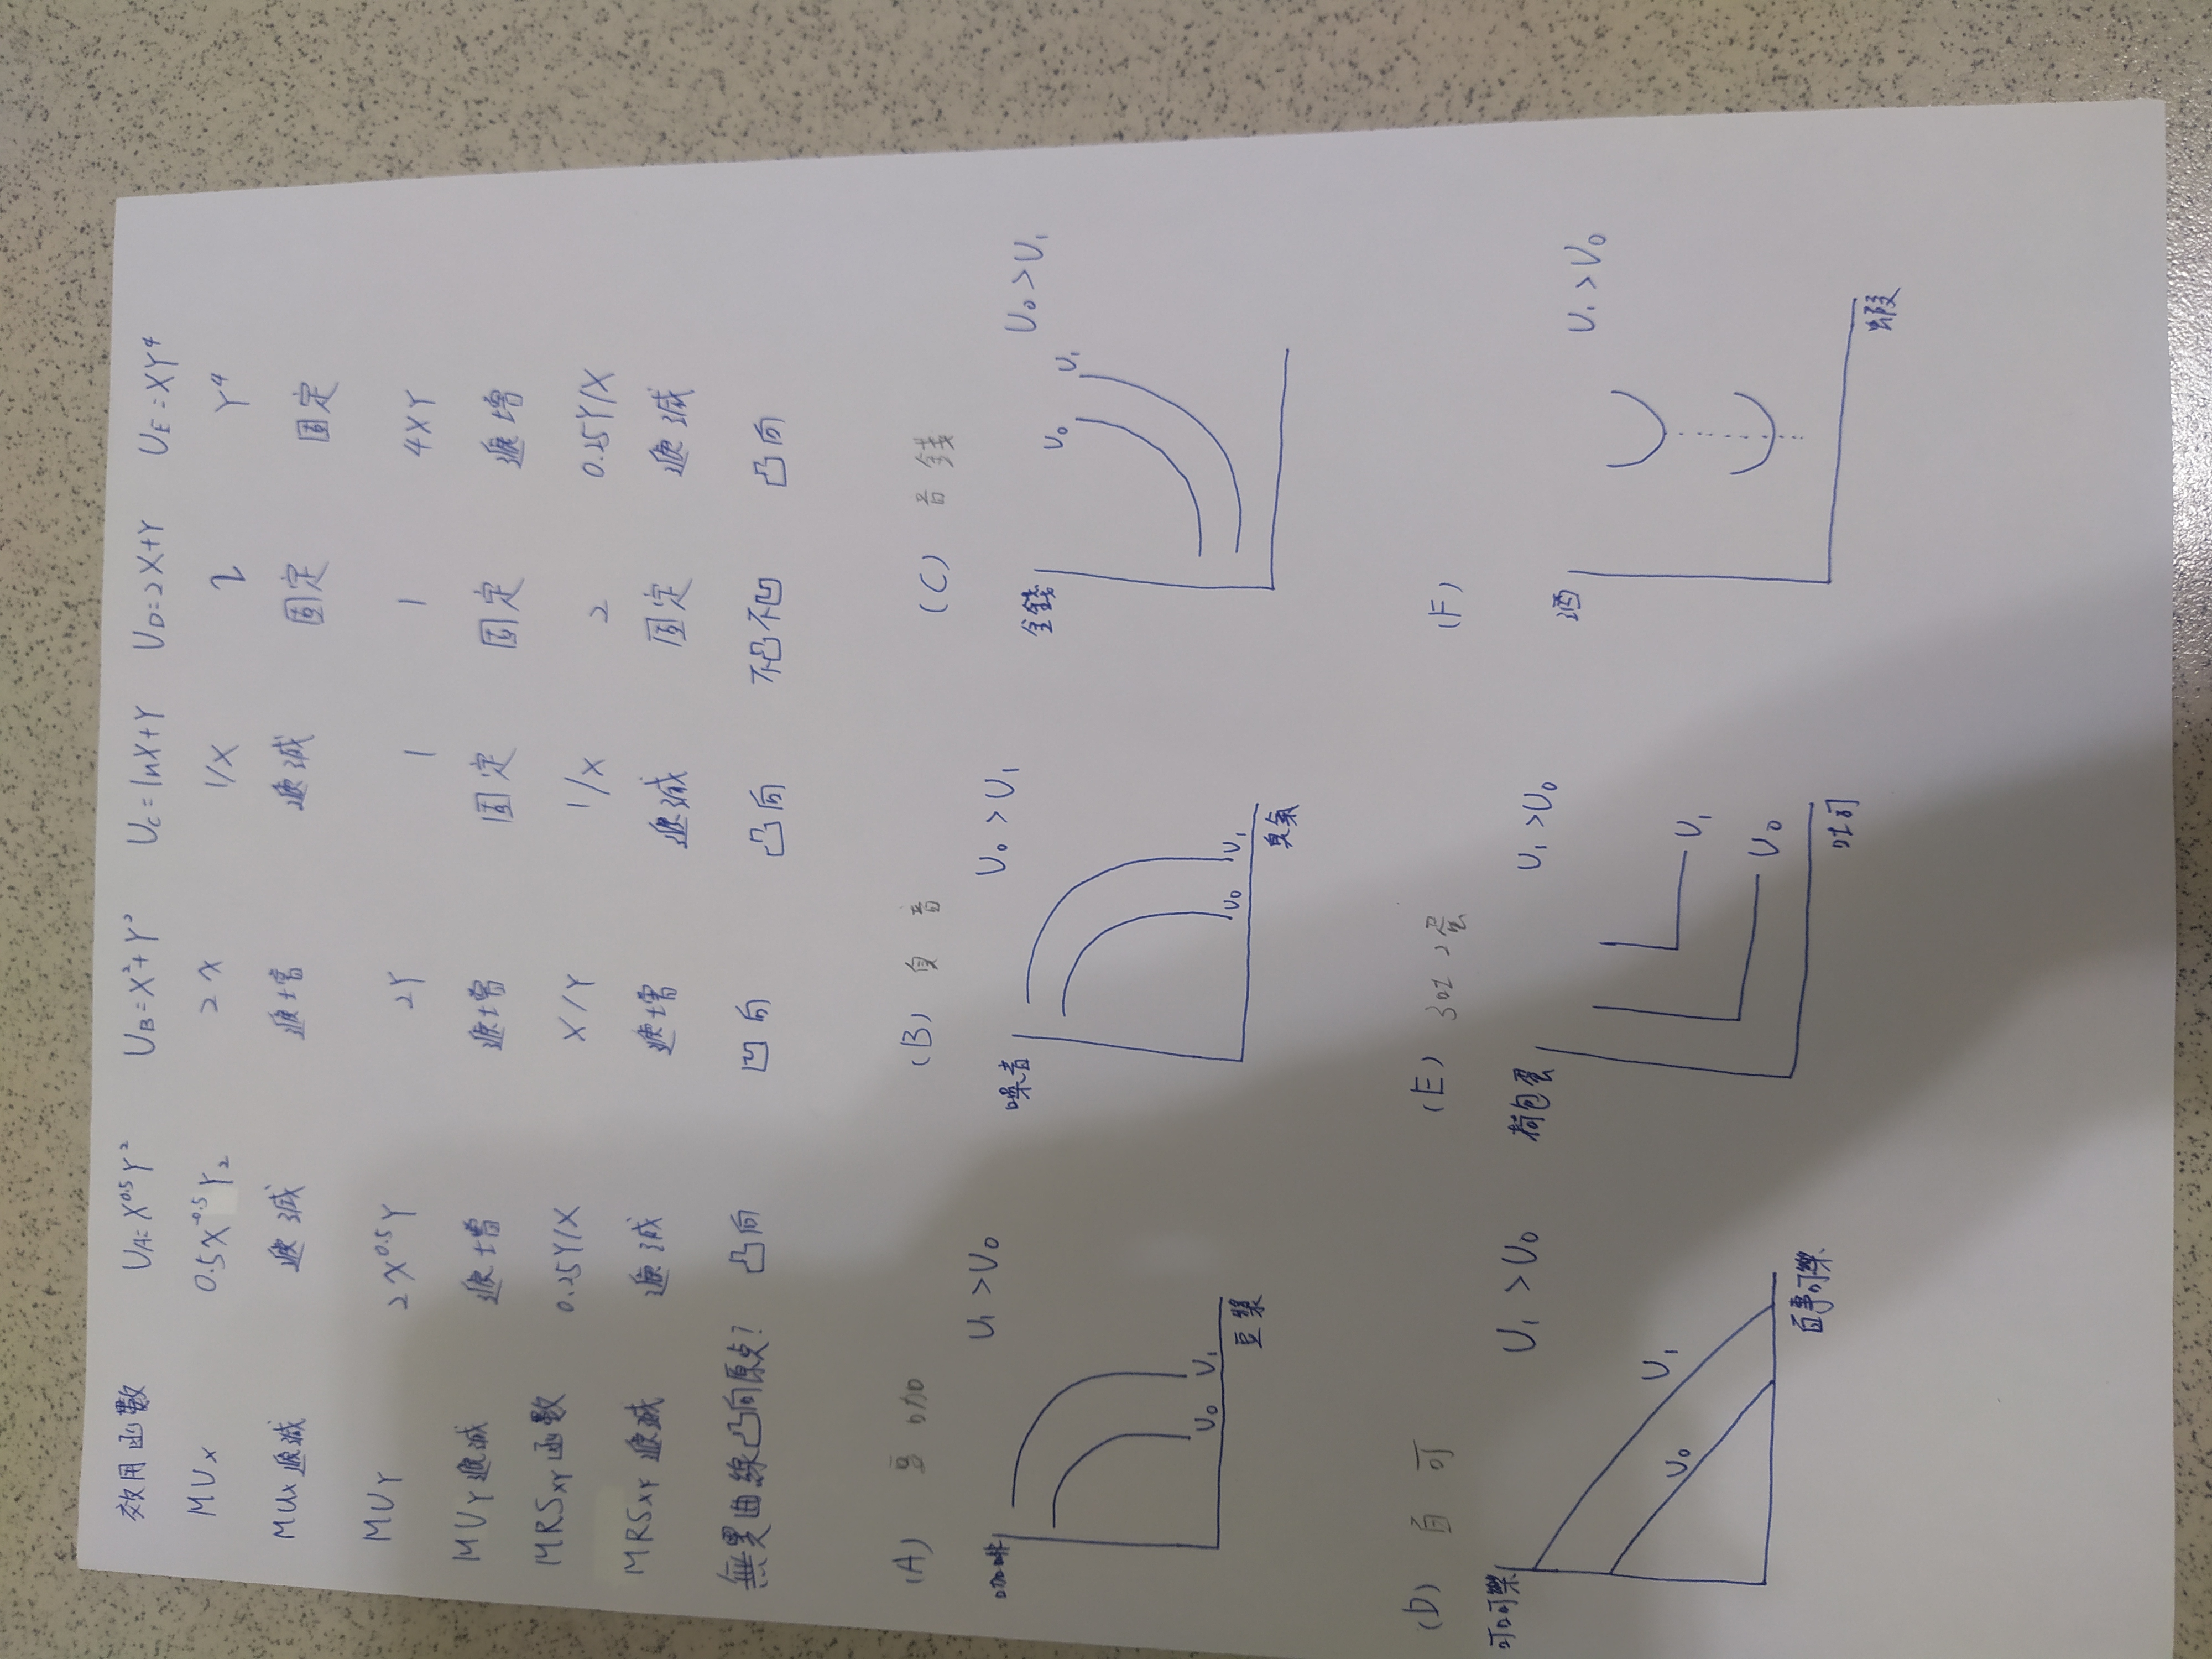 效用函數 U_A=X^0.5 Y^2 U_B=X^2+Y^2 U_C=lnX+Y U_D=2X+Y U_E=XY^4
MUx 0.5X^-0.5 Y_2 2X 1/X 2 Y^4
MUx遞減 遞減 遞增 遞減 固定 固定
MUY 2X^0.5 Y 2Y 1 1 4XY
MUY遞減 遞增 遞增 固定 固定 遞增
MRSxY函數 0.25Y/X X/Y 1/X 2 0.25Y/X
MRSxY遞減 遞減 遞增 遞減 固定 遞減
無異曲線凸向原点? 凸向 凹向 凸向 不凸不凹 凸向
(A) 豆 咖
(B) 臭 音
(C) 音 錢
咖啡
U1>U0
U0
U1
豆漿
噪音
U0>U1
U0
U1
臭氣
金錢
U0>U1
U0
U1
(D) 百 可
(E) 3吐 2蛋
(F)
可口可樂
U1>U0
U1
U0
百事可樂
荷包蛋
U1>U0
U1
U0
吐司
酒
U1>U0
蝦